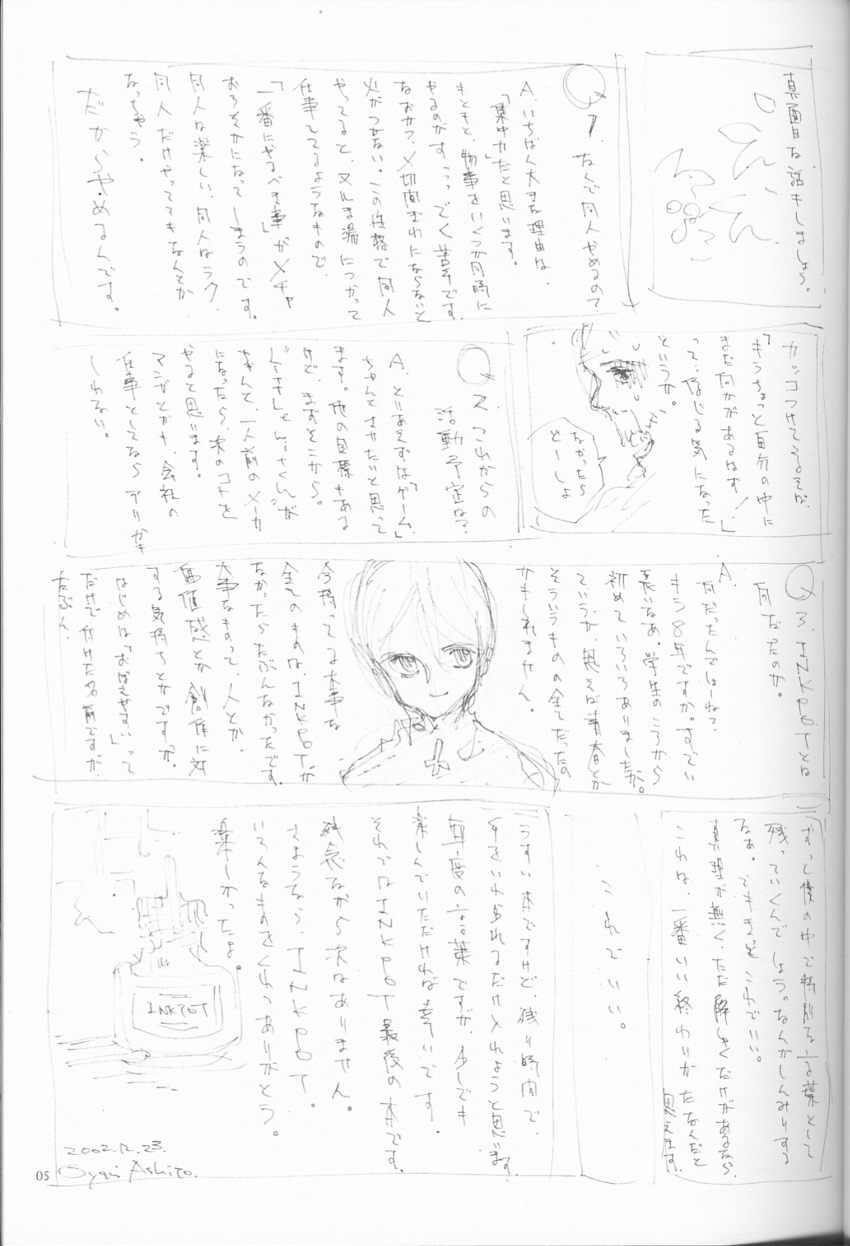 真面目な話をしましょう。
Q1. なんで同人やめるの?
A. いちばん大きな理由は、
「集中力」だと思います。
もともと、物事をいくつか同時に
やるのがすっっごく苦手です。
なおかつ、〆切間ぎわにならないと
火がつかない。この性格で同人
やってると、ヌルま湯につかって
仕事してるようなもので、
「一番にやるべき事」がメチャ
おろそかになってしまうのです。
同人は楽しい、同人はラク、
同人だけやっててもなんとか
なっちゃう。
だからやめるんです。
カッコつけてるが、
「もうちょっと自分の中に
まだ何かがあるはず!」
って、信じる気になった
というか。
なかったら
どーしよ
Q2. これからの
活動予定は?
A. とりあえずは「ゲーム」
ちゃんとさせたいと思って
ます。他の目標もある
けど、まずそこから。
ちゃんと、一人前のメーカ
になったら、次のコトを
やると思います。
マンガとかも、会社の
仕事としてならアリかも
しれない。
Q3. INKPOTとは
何だったのか。
A.
何だったんでしょーね?
もう8年ですか。すごい
長いなあ。学生のころから
初めていろいろありましたが。
ていうか、思えば青春とか
そういうものの全てだったの
かもしれません。
今持ってる大事な
全てのものは、INKPOTが
なかったらたぶんなかったです。
大事なものって、人とか、
価値感とか創作に対
する気持ちとかですが。
はじめは「おぼえやすい」って
だけで付けた名前ですが
たぶん、
ずっと僕の中で特別な言葉として
残っていくんでしょう。なんかしんみりする
なぁ。でもきっとこれでいい。
真理が無く、ただ解しくだけがあるなら、
これは、一番いい終わりかたなんだと
思えます。
これでいい。
うすい本ですけど、残り時間で、
手をいれられるだけ入れようと思います。
毎度の言葉ですが、少しでも
楽しんでいただければ幸いです。
それではINKPOT最後の本です。
残念ながら次はありません。
さようなら、INKPOT。
いろんなものをくれてありがとう。
楽しかったよ。
INKPOT
2002.12.23.
Oyari Ashito.
05